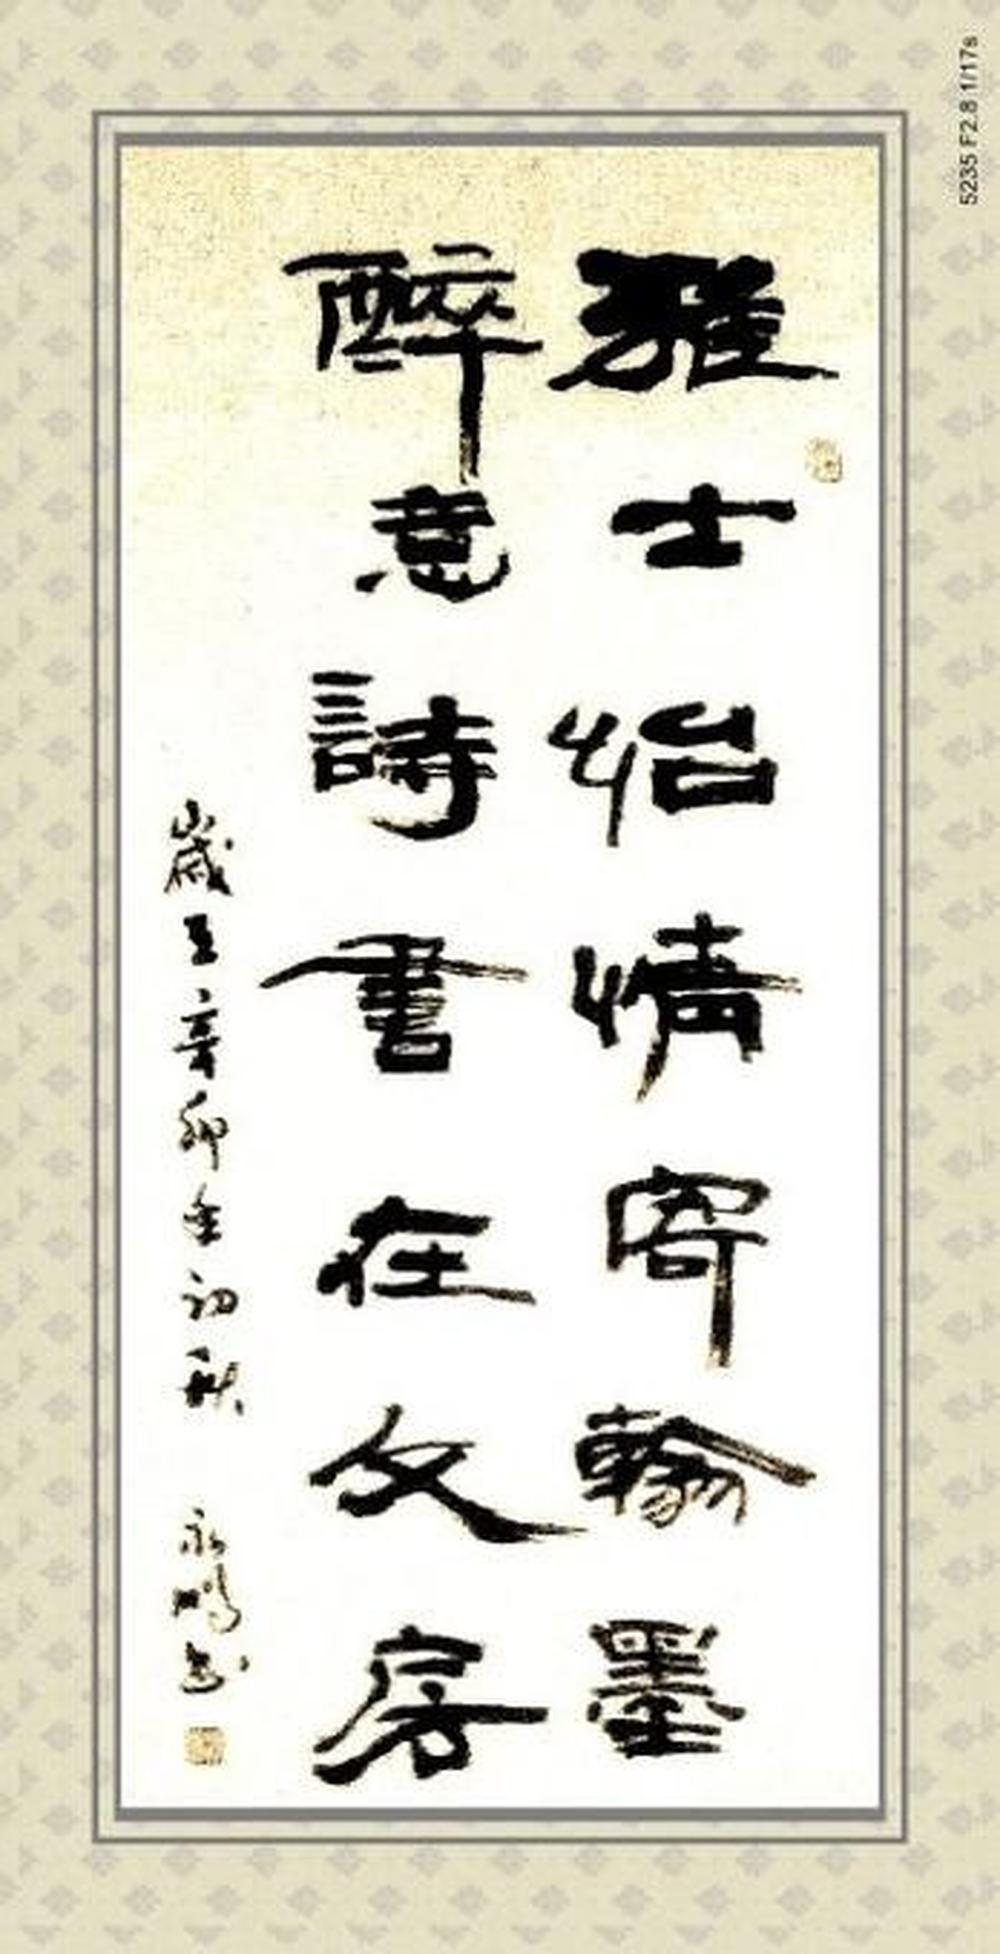 雅士怡情寄翰墨
醉意詩書在文房
歲辛卯年初秋
永鵬書
5235 F2.8 1/17s